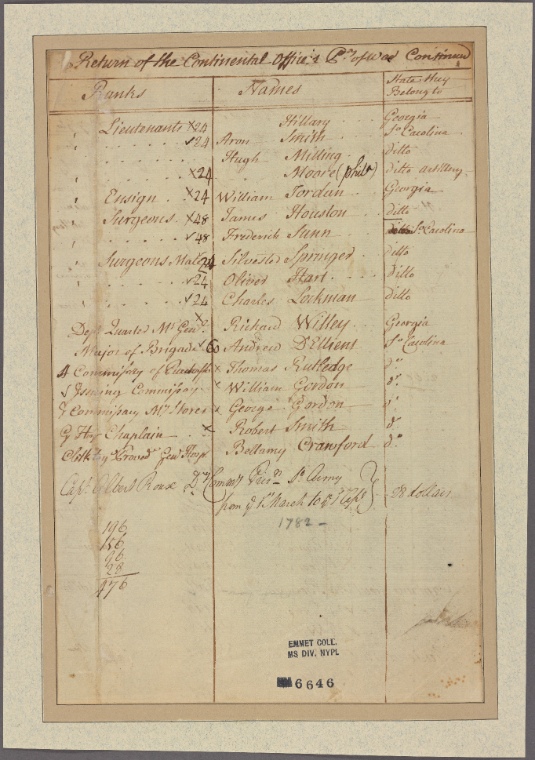 Return of the Continental Offic's Prs of War Continued
Ranks Names State they Belong to
Lieutenants x24 Hillary Georgia
x24 Aron Smith So Carolina
Hugh Milling ditto
x24 Moore (phila) ditto Artillery
Ensign x24 William Jordan Georgia
Surgeons x48 James Houston ditto
x48 Frederick Sunn So Carolina
Surgeons Mates 24 Silvester Springer ditto
x24 Oliver Hart ditto
x24 Charles Lockman ditto
Depy Quarter Mr Genl x Richard Willey Georgia
Major of Brigade x 60 Andrew DEllient So Carolina
Commissary of x Thomas Rutledge do
Issuing Commissary x William Gordon do
Commissary Mily Stores x George Gordon do
Chaplain x Robert Smith do
Bellamy Crawford do
Capt Albert Roux Army
from ye 1st March to ye 28 dollars
1782 -
196
156
96
28
476
EMMET COLL.
MS DIV. NYPL
6646